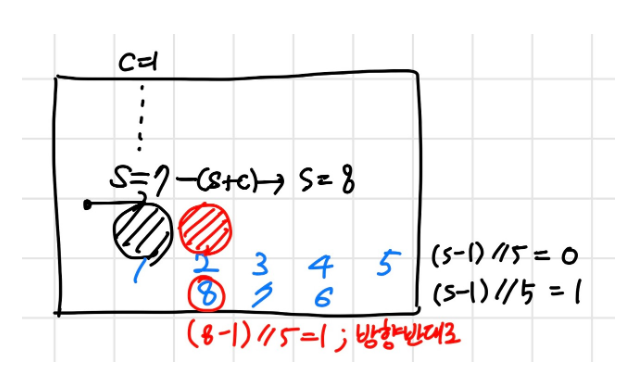 C=1
S=7 -(S+C)→ S=8
1 2 3 4 5
8 7 6
(S-1)//5 = 0
(S-1)//5 = 1
(8-1)//5=1 ; 방향반대로